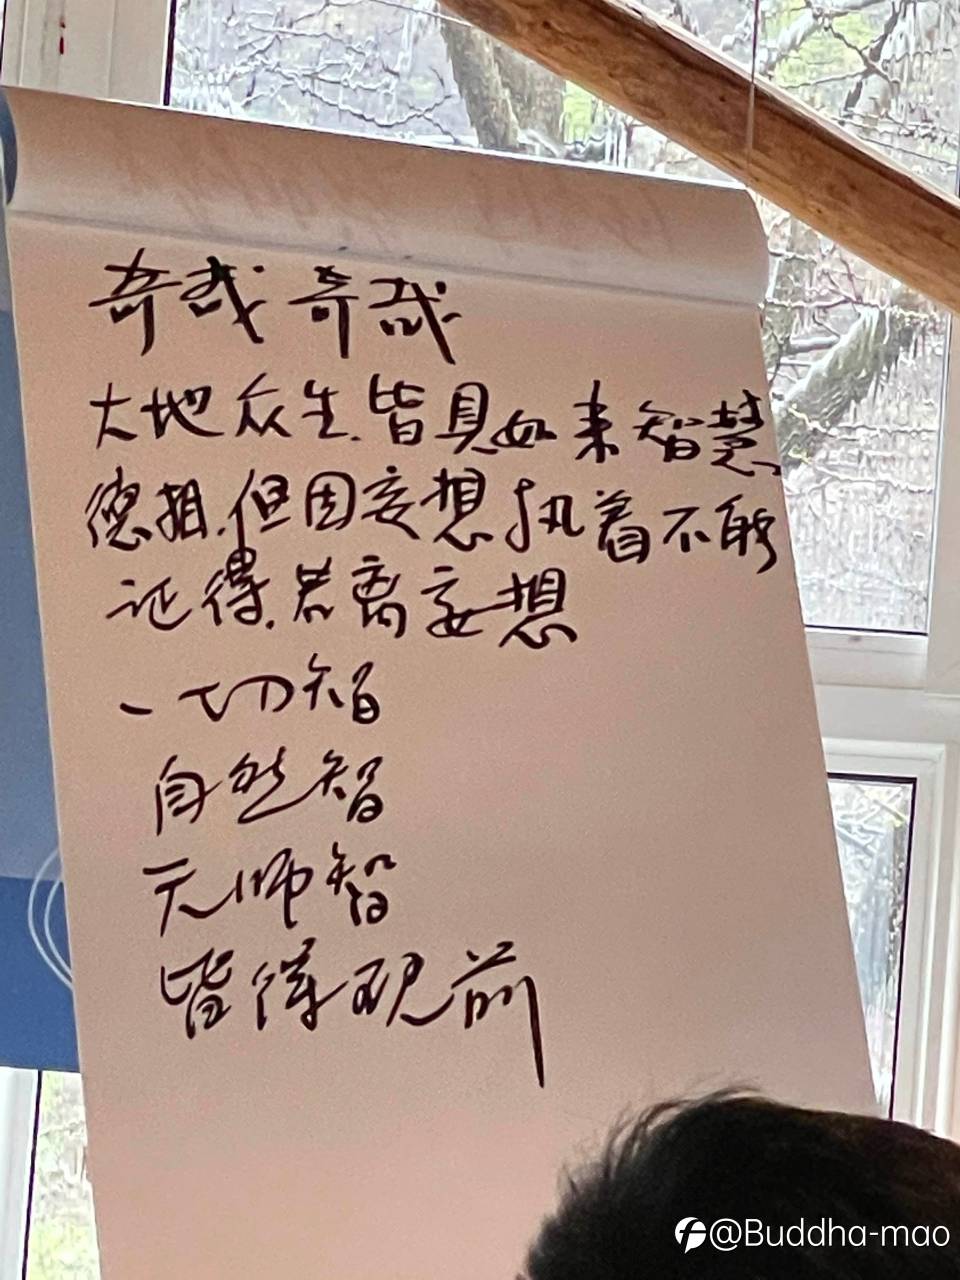 奇哉 奇哉
大地众生.皆具如来智慧
德相.但因妄想执着不能
证得.若离妄想
一切智
自然智
无师智
皆得现前
@Buddha-mao